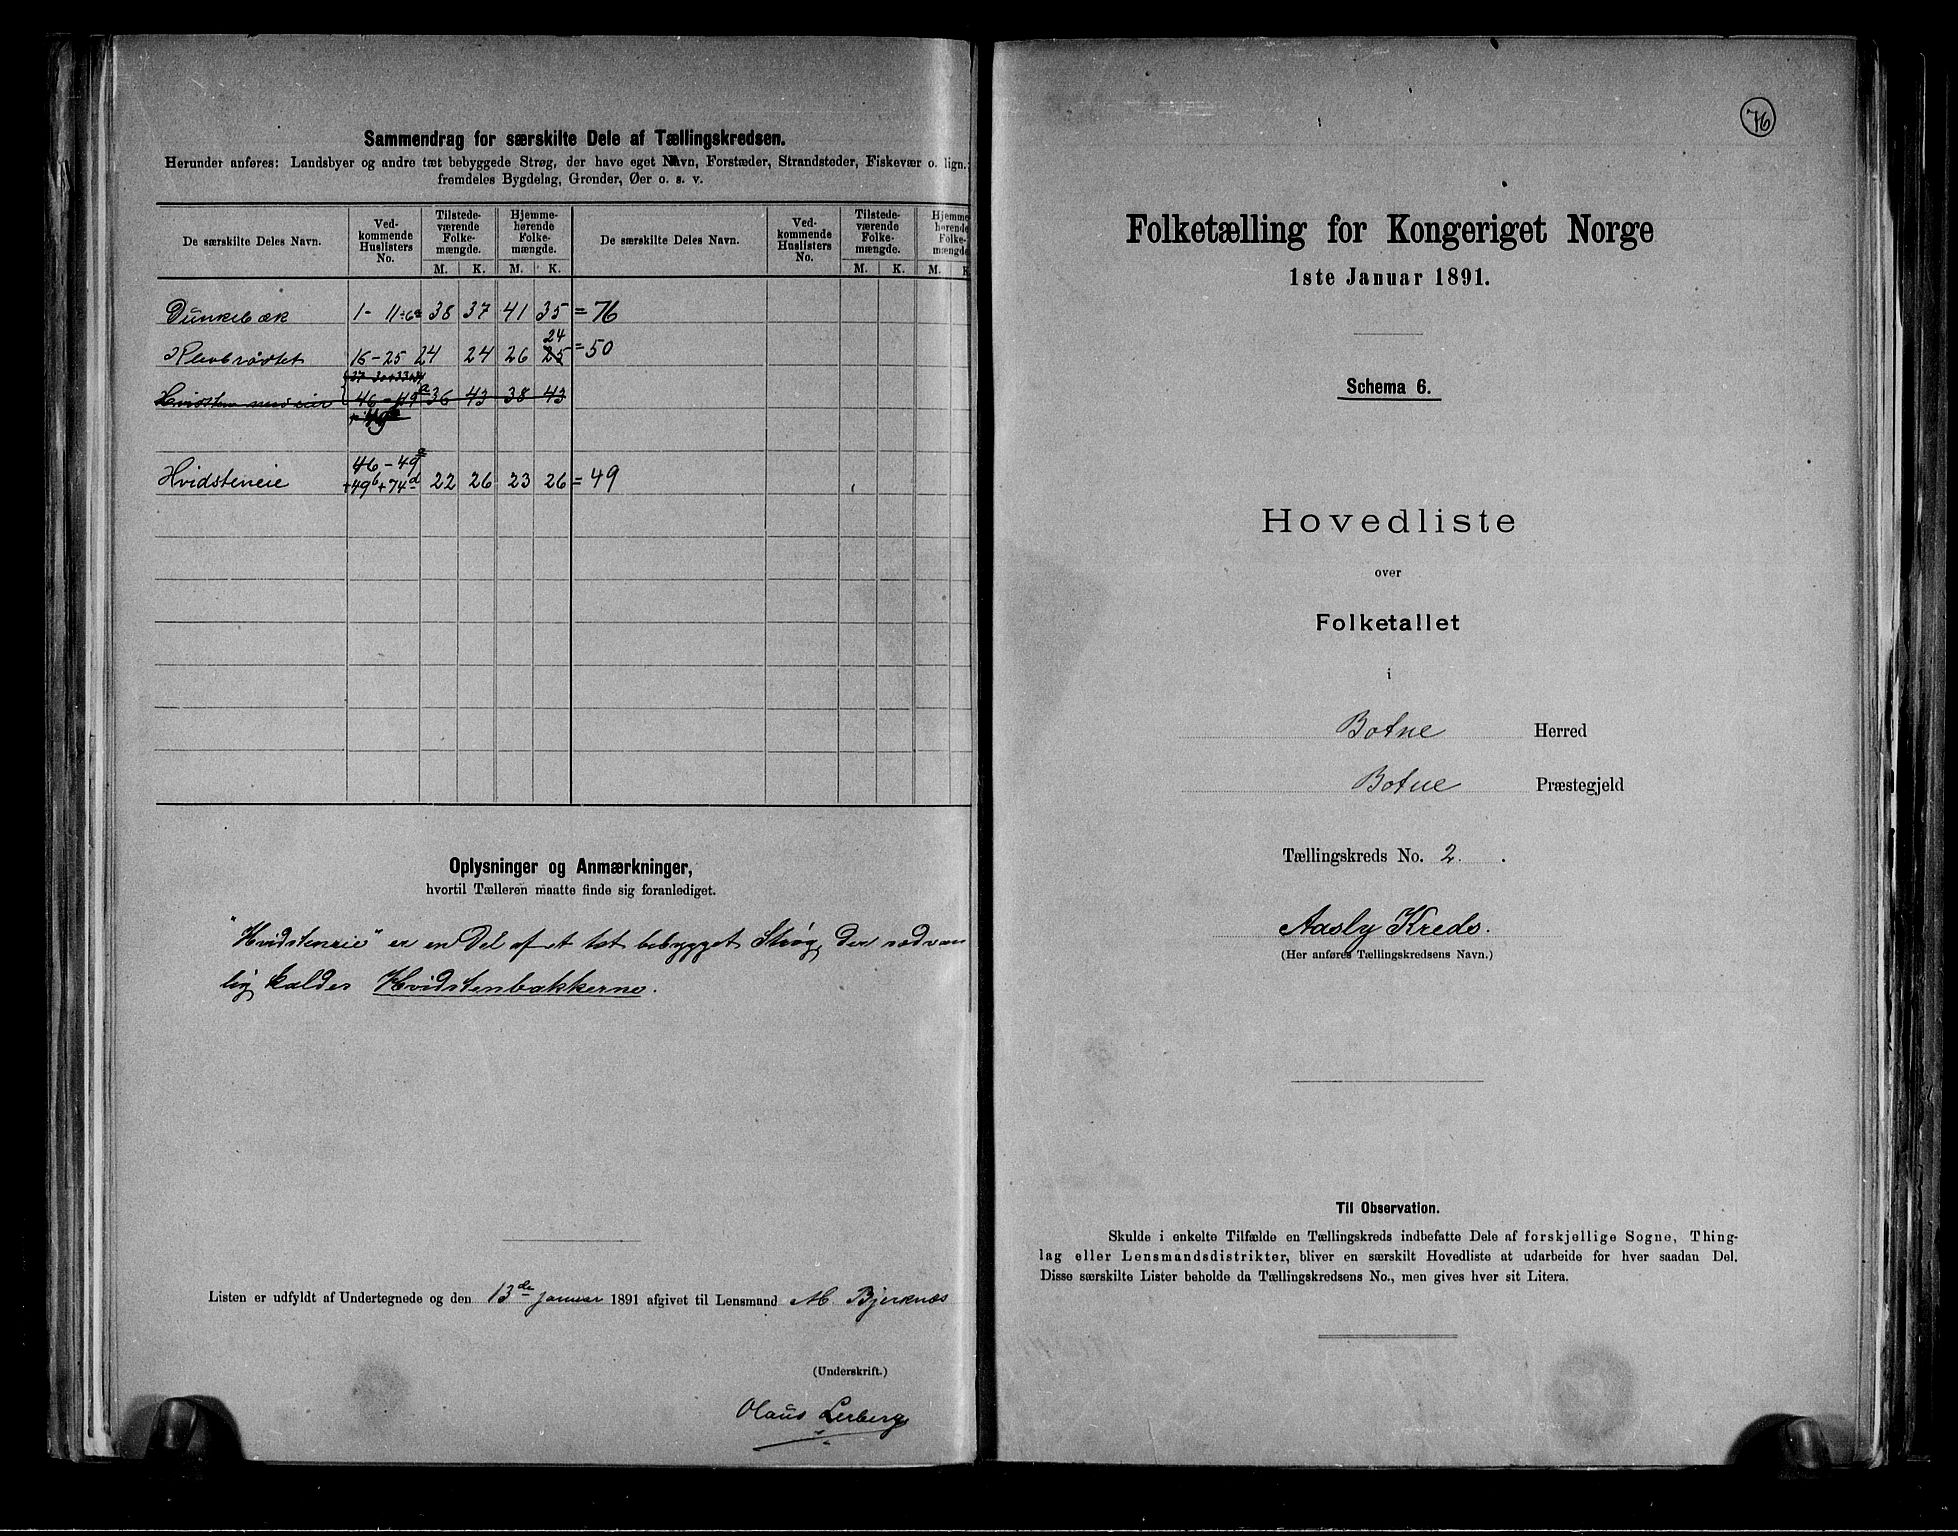 Sammendrag for særskilte Dele af Tællingskredsen.
Herunder anføres: Landsbyer og andre tæt bebyggede Strøg, der have eget Navn, Forstæder, Strandsteder, Fiskevær o. lign.;
fremdeles Bygdelag, Grender, Øer o. s. v.
De særskilte Deles Navn. Ved-kommende Huslisters No. Tilstede-værende Folke-mængde. Hjemme-hørende Folke-mængde. De særskilte Deles Navn. Ved-kommende Huslisters No. Tilstede-værende Folke-mængde. Hjemme-hørende Folke-mængde
M. K. M. K. M. K. M. K
Dunkebæk 1 - 11 38 37 41 35 = 76
24
16 - 25 24 24 26 25 = 50
46 - 49a 36 43 38 43
46 - 49a
Hvidsteneie +49b +74d 22 26 23 26 = 49
Oplysninger og Anmærkninger,
hvortil Tælleren maatte finde sig foranlediget.
"Hvidsteneie" er en Del af et tæt bebygget Strøg, der sædvan
lig kaldes Hvidstenbakkerne.
Listen er udfyldt af Undertegnede og den 13de Januar 1891 afgivet til Lensmand M. Bjerknæs
(Underskrift.)
Olaus Lerberg
76
Folketælling for Kongeriget Norge
1ste Januar 1891.
Schema 6.
Hovedliste
over
Folketallet
i
Botne Herred
Botne Præstegjeld
Tællingskreds No. 2.
Aasby Kreds.
(Her anføres Tællingskredsens Navn.)
Til Observation.
Skulde i enkelte Tilfælde en Tællingskreds indbefatte Dele af forskjellige Sogne, Thing-
lag eller Lensmandsdistrikter, bliver en særskilt Hovedliste at udarbeide for hver saadan Del.
Disse særskilte Lister beholde da Tællingskredsens No., men gives hver sit Litera.